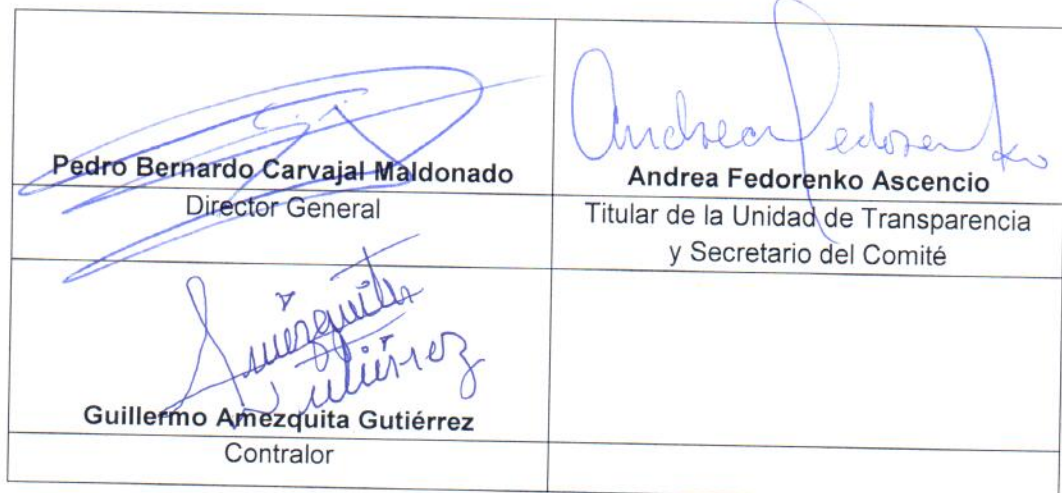 Andrea Fedorenko
Pedro Bernardo Carvajal Maldonado
Andrea Fedorenko Ascencio
Director General
Titular de la Unidad de Transparencia
y Secretario del Comité
Amézquita
Gutiérrez
Guillermo Amezquita Gutiérrez
Contralor